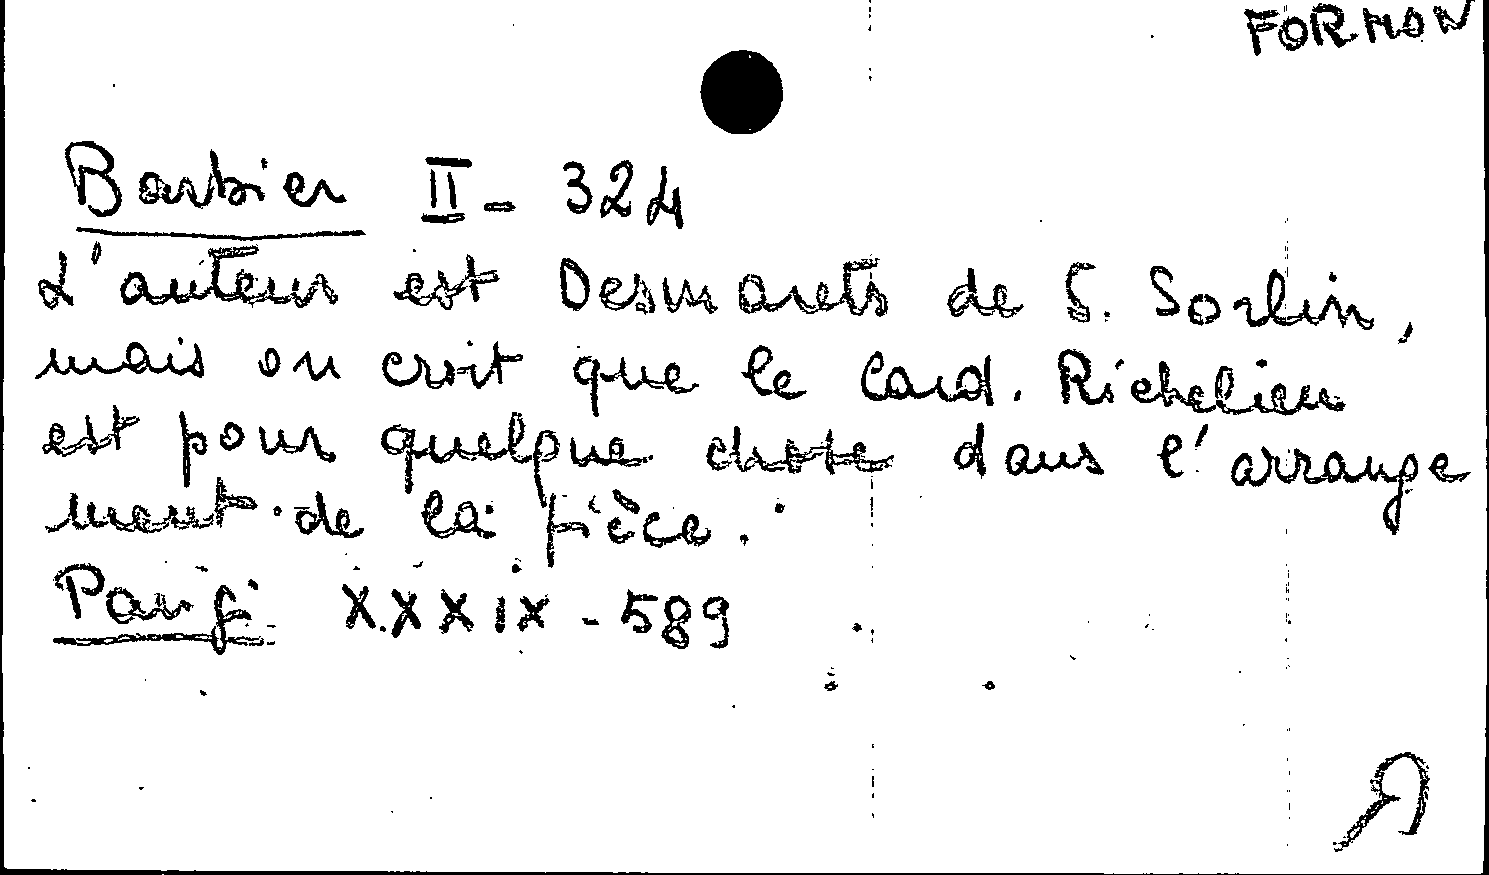 FORMON
Barbier II - 324
L'auteur est Desmarets de S. Sorlin,
mais on croit que le Card. Richelieu
est pour quelque chose dans l'arrange
ment de la pièce.
XXXIX - 589